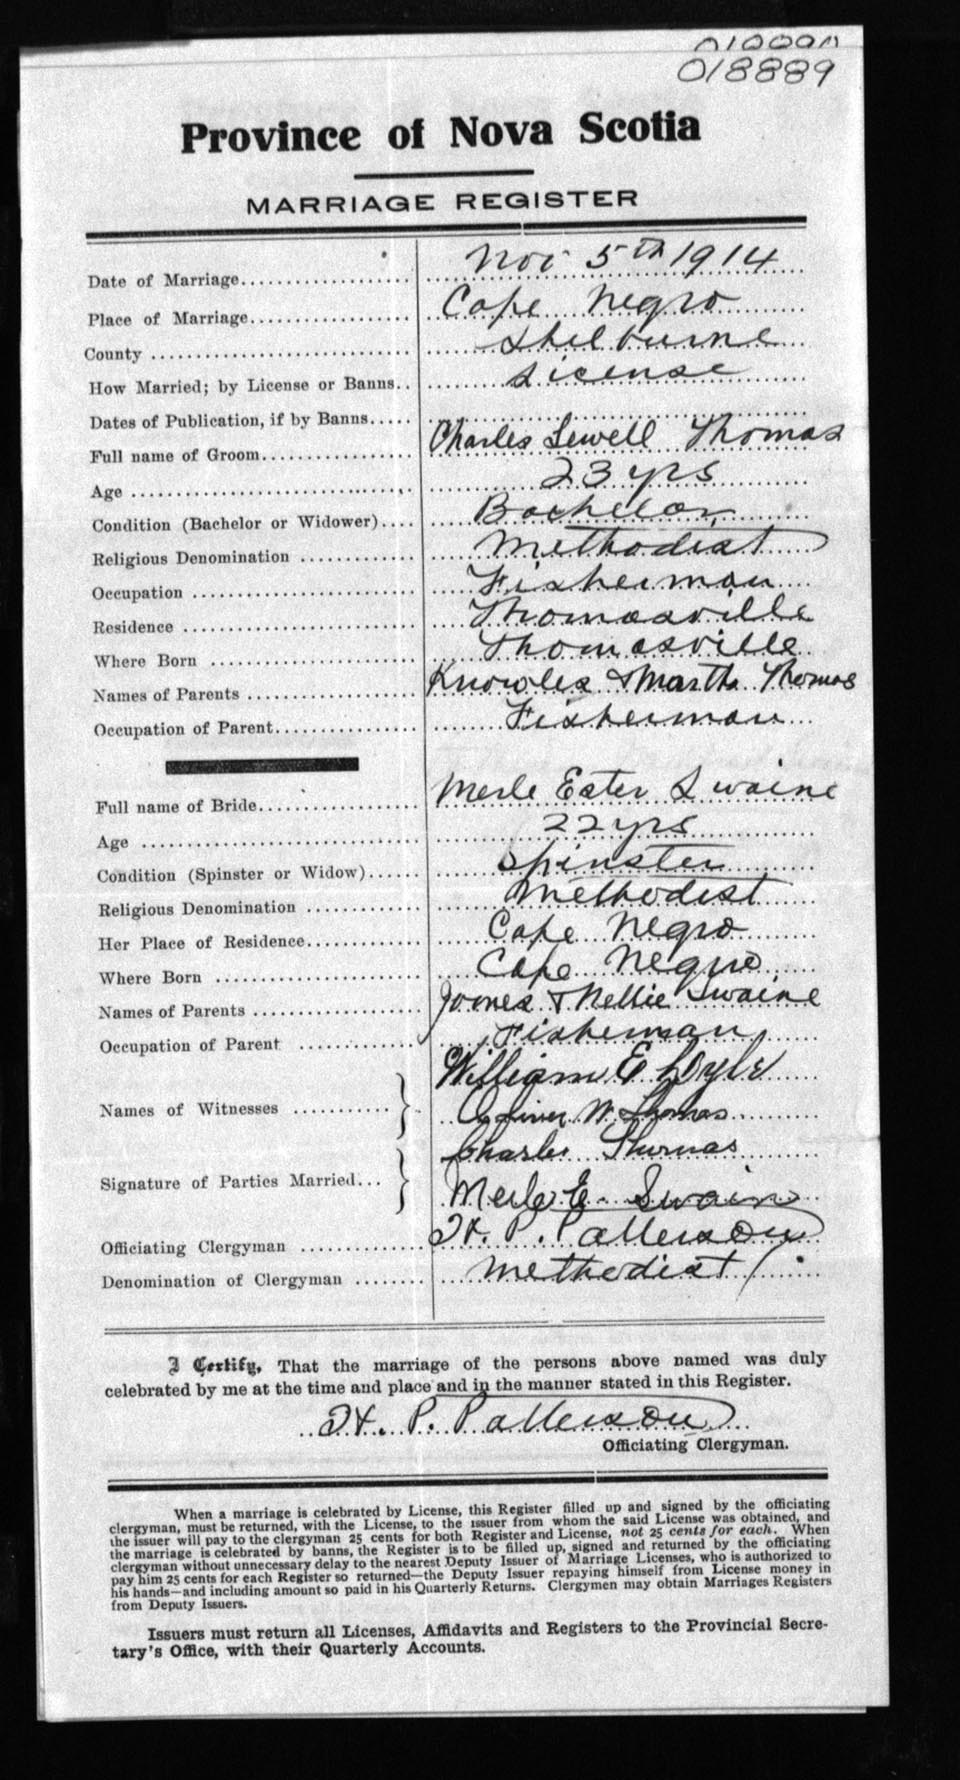 018889
Province of Nova Scotia
MARRIAGE REGISTER
Date of Marriage Nov 5th 1914
Place of Marriage Cape Negro
County Shelburne
How Married; by License or Banns License
Dates of Publication, if by Banns
Full name of Groom Charles Sewell Thomas
Age 23 yrs
Condition (Bachelor or Widower) Bachelor
Religious Denomination Methodist
Occupation Fisherman
Residence Thomasville
Where Born Thomasville
Names of Parents Knowles & Martha Thomas
Occupation of Parent Fisherman
Full name of Bride Merle Ester Swaine
Age 22 yrs
Condition (Spinster or Widow) Spinster
Religious Denomination Methodist
Her Place of Residence Cape Negro
Where Born Cape Negro
Names of Parents James & Nellie Swaine
Occupation of Parent Fisherman
William E Doyle
Names of Witnesses W. Thomas
Charles Thomas
Signature of Parties Married Merle E. Swain
Officiating Clergyman H. P. Patterson
Denomination of Clergyman Methodist
I Certify, That the marriage of the persons above named was duly
celebrated by me at the time and place and in the manner stated in this Register.
H. P. Patterson
Officiating Clergyman.
When a marriage is celebrated by License, this Register filled up and signed by the officiating
clergyman, must be returned, with the License, to the issuer from whom the said License was obtained, and
the issuer will pay to the clergyman 25 cents for both Register and License, not 25 cents for each. When
the marriage is celebrated by banns, the Register is to be filled up, signed and returned by the officiating
clergyman without unnecessary delay to the nearest Deputy Issuer of Marriage Licenses, who is authorized to
pay him 25 cents for each Register so returned—the Deputy Issuer repaying himself from License money in
his hands—and including amount so paid in his Quarterly Returns. Clergymen may obtain Marriages Registers
from Deputy Issuers.
Issuers must return all Licenses, Affidavits and Registers to the Provincial Secre-
tary's Office, with their Quarterly Accounts.